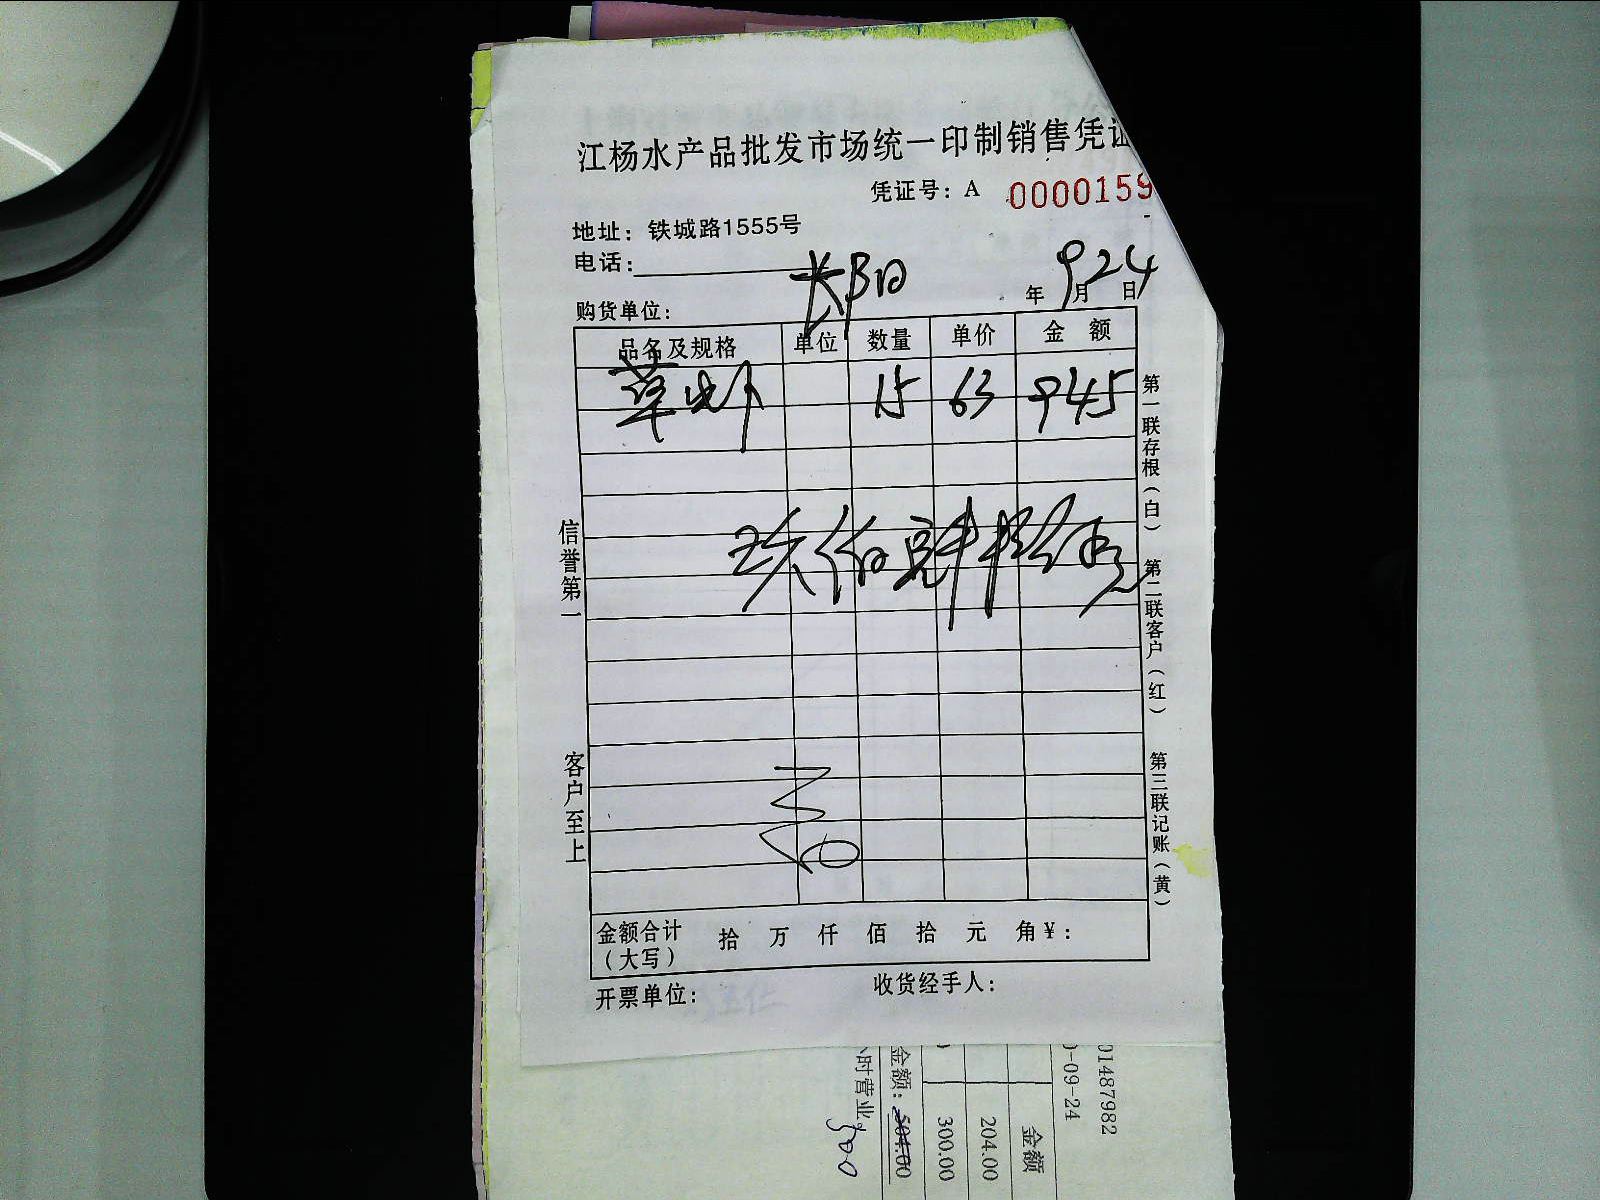 江杨水产品批发市场统一印制销售凭证
凭证号：A 0000159
地址：铁城路1555号
电话：
购货单位：
长阳
年 9月 24日
品名及规格 单位 数量 单价 金 额
草虾 15 63 945
玖佰肆拾伍元
信誉第一
客户至上
第一联存根（白）
第二联客户（红）
第三联记账（黄）
金额合计（大写） 拾 万 仟 佰 拾 元 角¥：
开票单位：
收货经手人：
01487982
0-09-24
金额
204.00
300.00
金额：504.00
小时营业
500